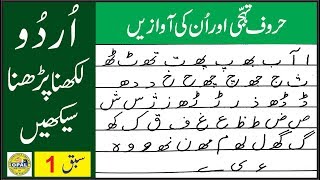 حروف تہجی اور اُن کی آوازیں
اُردُو
لکھنا پڑھنا
سیکھیں
سبق 1
ا آ ب بھ پ پھ ت تھ ٹ ٹھ
ث ج جھ چ چھ ح خ د دھ
ڈ ڈھ ذ ر ڑ ڑھ ز ژ س ش
ص ض ط ظ ع غ ف ق ک کھ
گ گھ ل لھ م مھ ن نھ و وہ ہ
ء ی ے